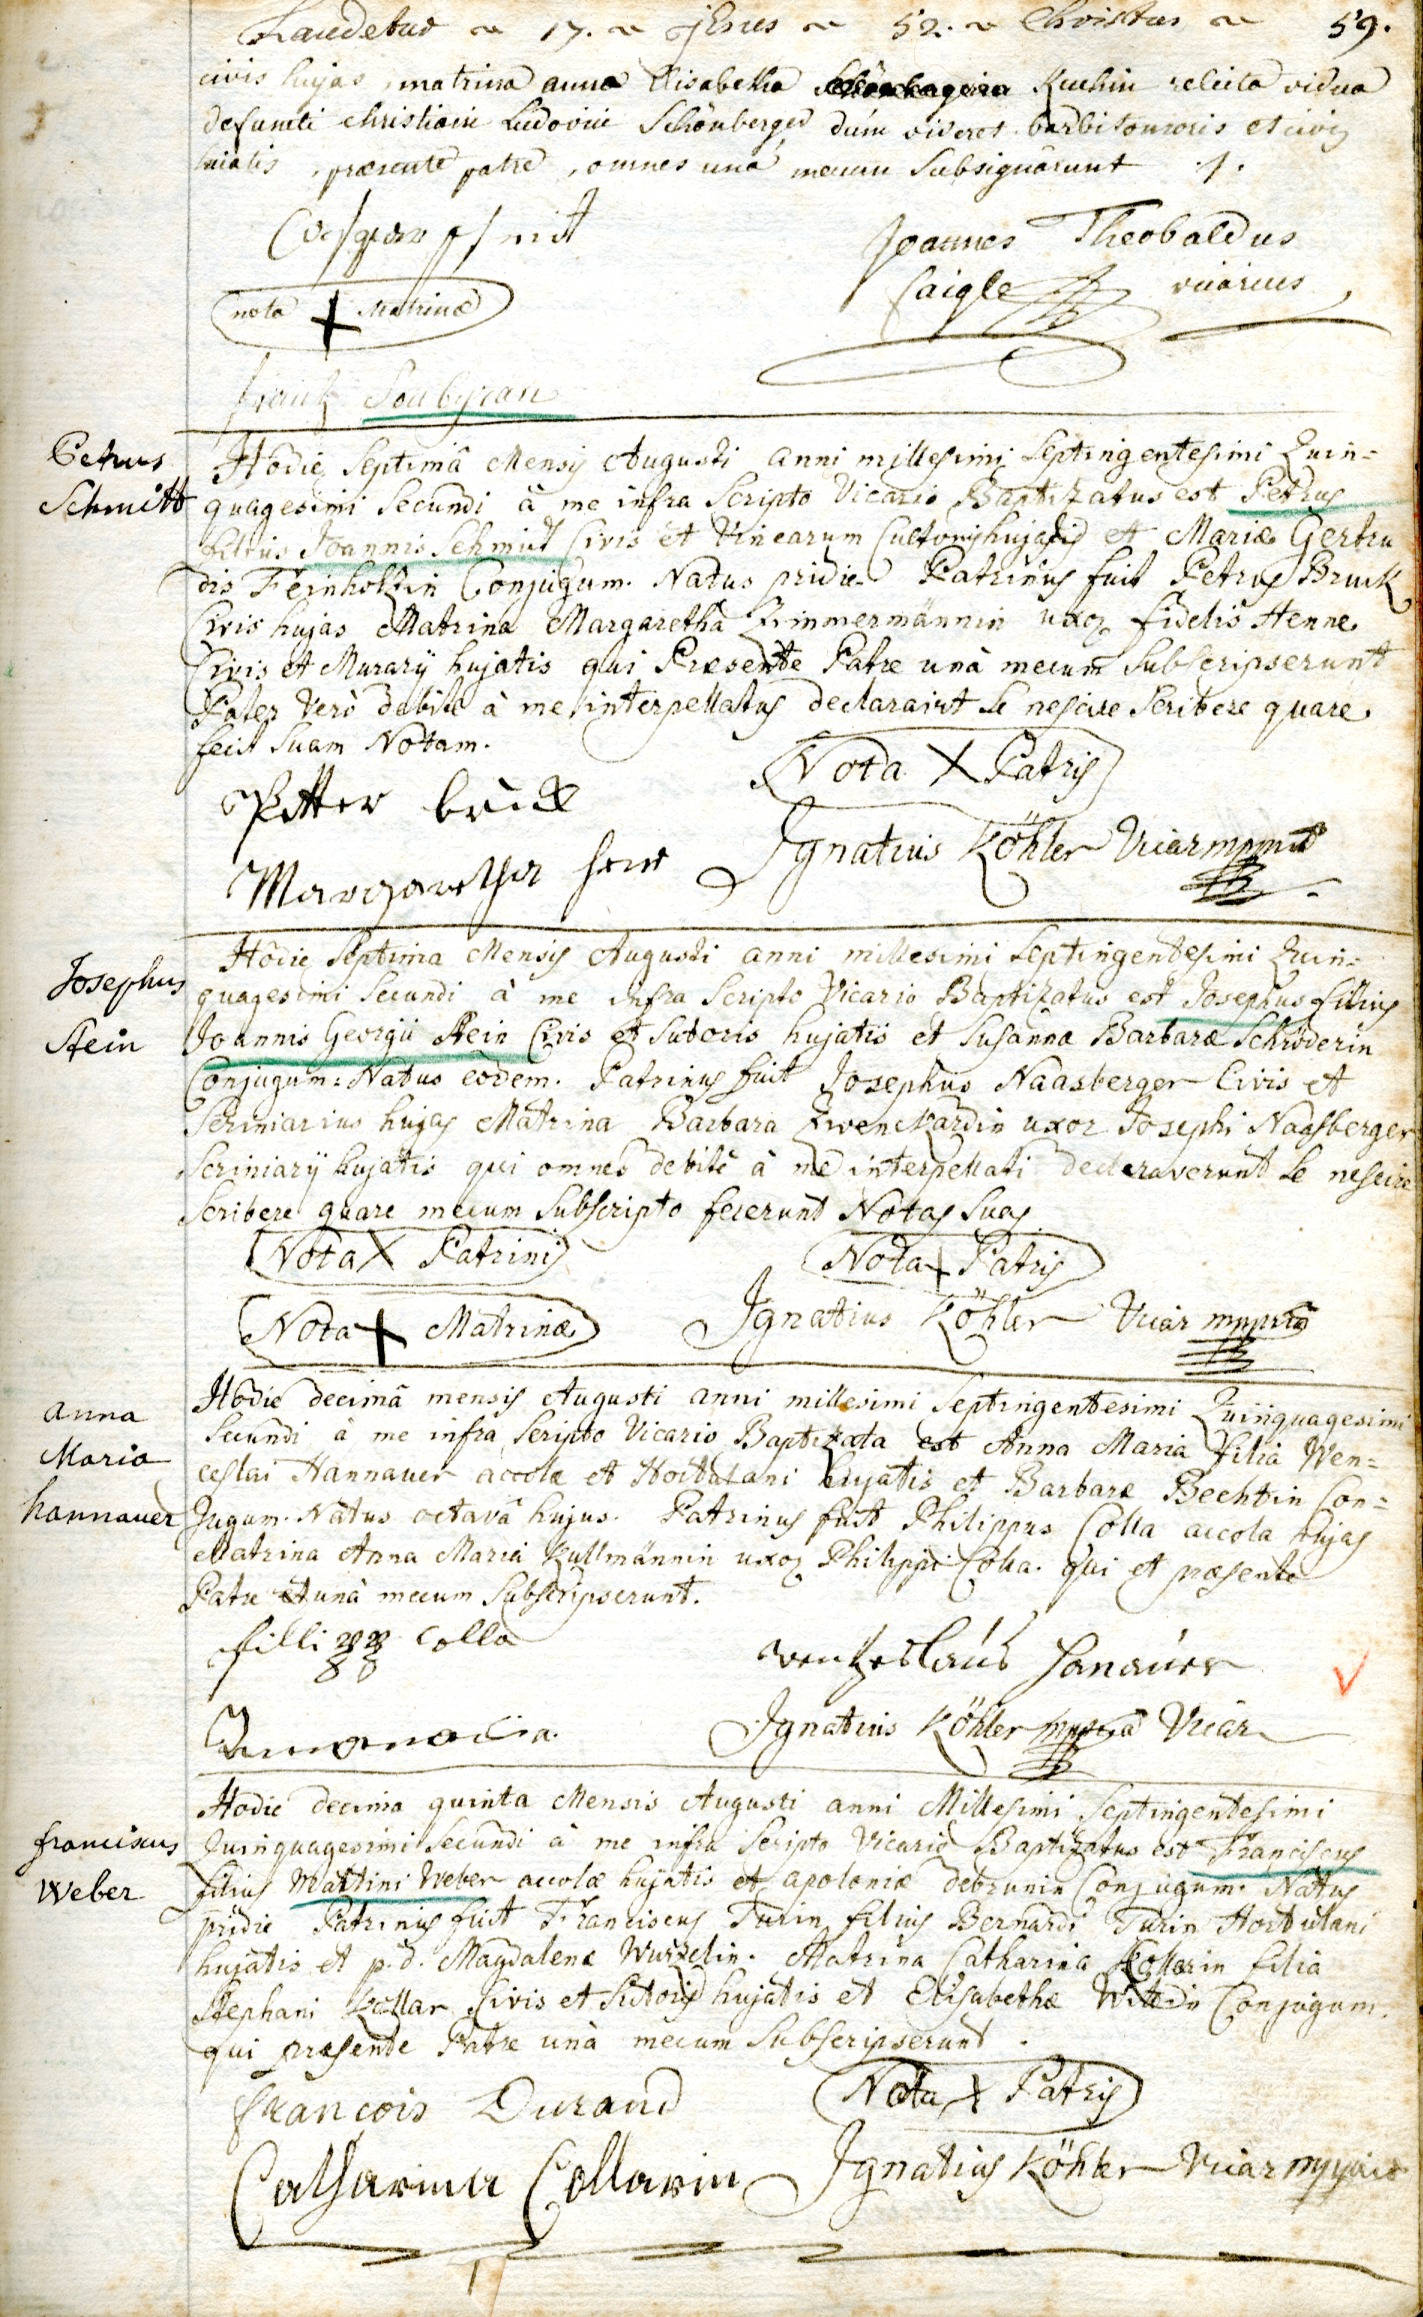 Laudetur ~ 17. ~ Jesus ~ 52. ~ Christus ~ 59.
civis hujas, matrina anna Elisabetha Kuchin relicta vidua
defuncti christiani Ludovici Schönberger dum viveret barbitonsoris et civis
hujatis, præsente patre, omnes unà mecum Subsignarunt ./.
Joannes Theobaldus
Caspar schmit
Saigle vicarius
nota + Matrinæ
frantz Soubiran
Petrus
Schmitt
Hodie Septimâ Mensis Augusti anni millesimi Septingentesimi Quin=
quagesimi Secundi à me infra Scripto Vicario Baptizatus est Petrus
filius Joannis Schmitt Civis et Vinearum Cultoris hujatis et Mariæ Gertru
dis Feinholtzin Conjugum. Natus pridie. Patrinus fuit Petrus Bruck
Civis hujas Matrina Margaretha Zimmermännin uxor fidelis Henne
Civis et Murarij hujatis qui Præsente Patre unà mecum Subscripserunt
Pater Verò debitè à me interpellatus declaravit Se nescire Scribere quare
fecit Suam Notam.
Nota X Patris
Pitter brück
Ignatius Köhler Vicar mppria
Margaretha henn
Josephus
Stein
Hodie Septima Mensis Augusti anni millesimi Septingentesimi Quin=
quagesimi Secundi à me infra Scripto Vicario Baptizatus est Josephus filius
Joannis Georgii Stein Civis et Sutoris hujatis et Susannæ Barbaræ Schröderin
Conjugum: Natus eodem. Patrinus fuit Josephus Naasberger Civis et
Scriniarius hujas Matrina Barbara Zwenckardin uxor Josephi Naasberger
Scriniarij hujatis qui omnes debitè à me interpellati declaraverunt Se nescire
Scribere quare mecum Subscripto fecerunt Notas Suas
Nota X Patrini
Nota + Patris
Nota + Matrinæ
Ignatius Köhler Vicar mppria
anna
Maria
hannauer
Hodie decimâ mensis Augusti anni millesimi Septingentesimi Quinquagesimi
Secundi à me infra Scripto Vicario Baptizata est Anna Maria filia Wen=
ceslai Hannauer accolæ et Hortulani hujatis et Barbaræ Bechtin Con=
jugum. Natus octavâ hujus. Patrinus fuit Philippus Colla accola hujas
Matrina Anna Maria Kullmännin uxor Philippi Colla. qui et præsente
Patre et unà mecum Subscripserunt.
filli Colla
wentzeslaus hanauer
Ignatius Köhler mppria Vicar
franciscus
Weber
Hodie decima quinta Mensis Augusti anni Millesimi Septingentesimi
Quinquagesimi Secundi à me infra Scripto Vicario Baptizatus est Franciscus
filius Martini Weber accolæ hujatis et apoloniæ debrunin Conjugum. Natus
pridie Patrinus fuit Franciscus Turin filius Bernardi Turin Hortulani
hujatis et p.d. Magdalenæ Wurzelin. Matrina Catharina Kollarin filia
Stephani Kollar Civis et Sutoris hujatis et Elisabethæ Conjugum.
qui præsente Patre unà mecum Subscripserunt.
Nota X Patris
françois Durand
Catharina Collarin
Ignatius Köhler Vicar mppria